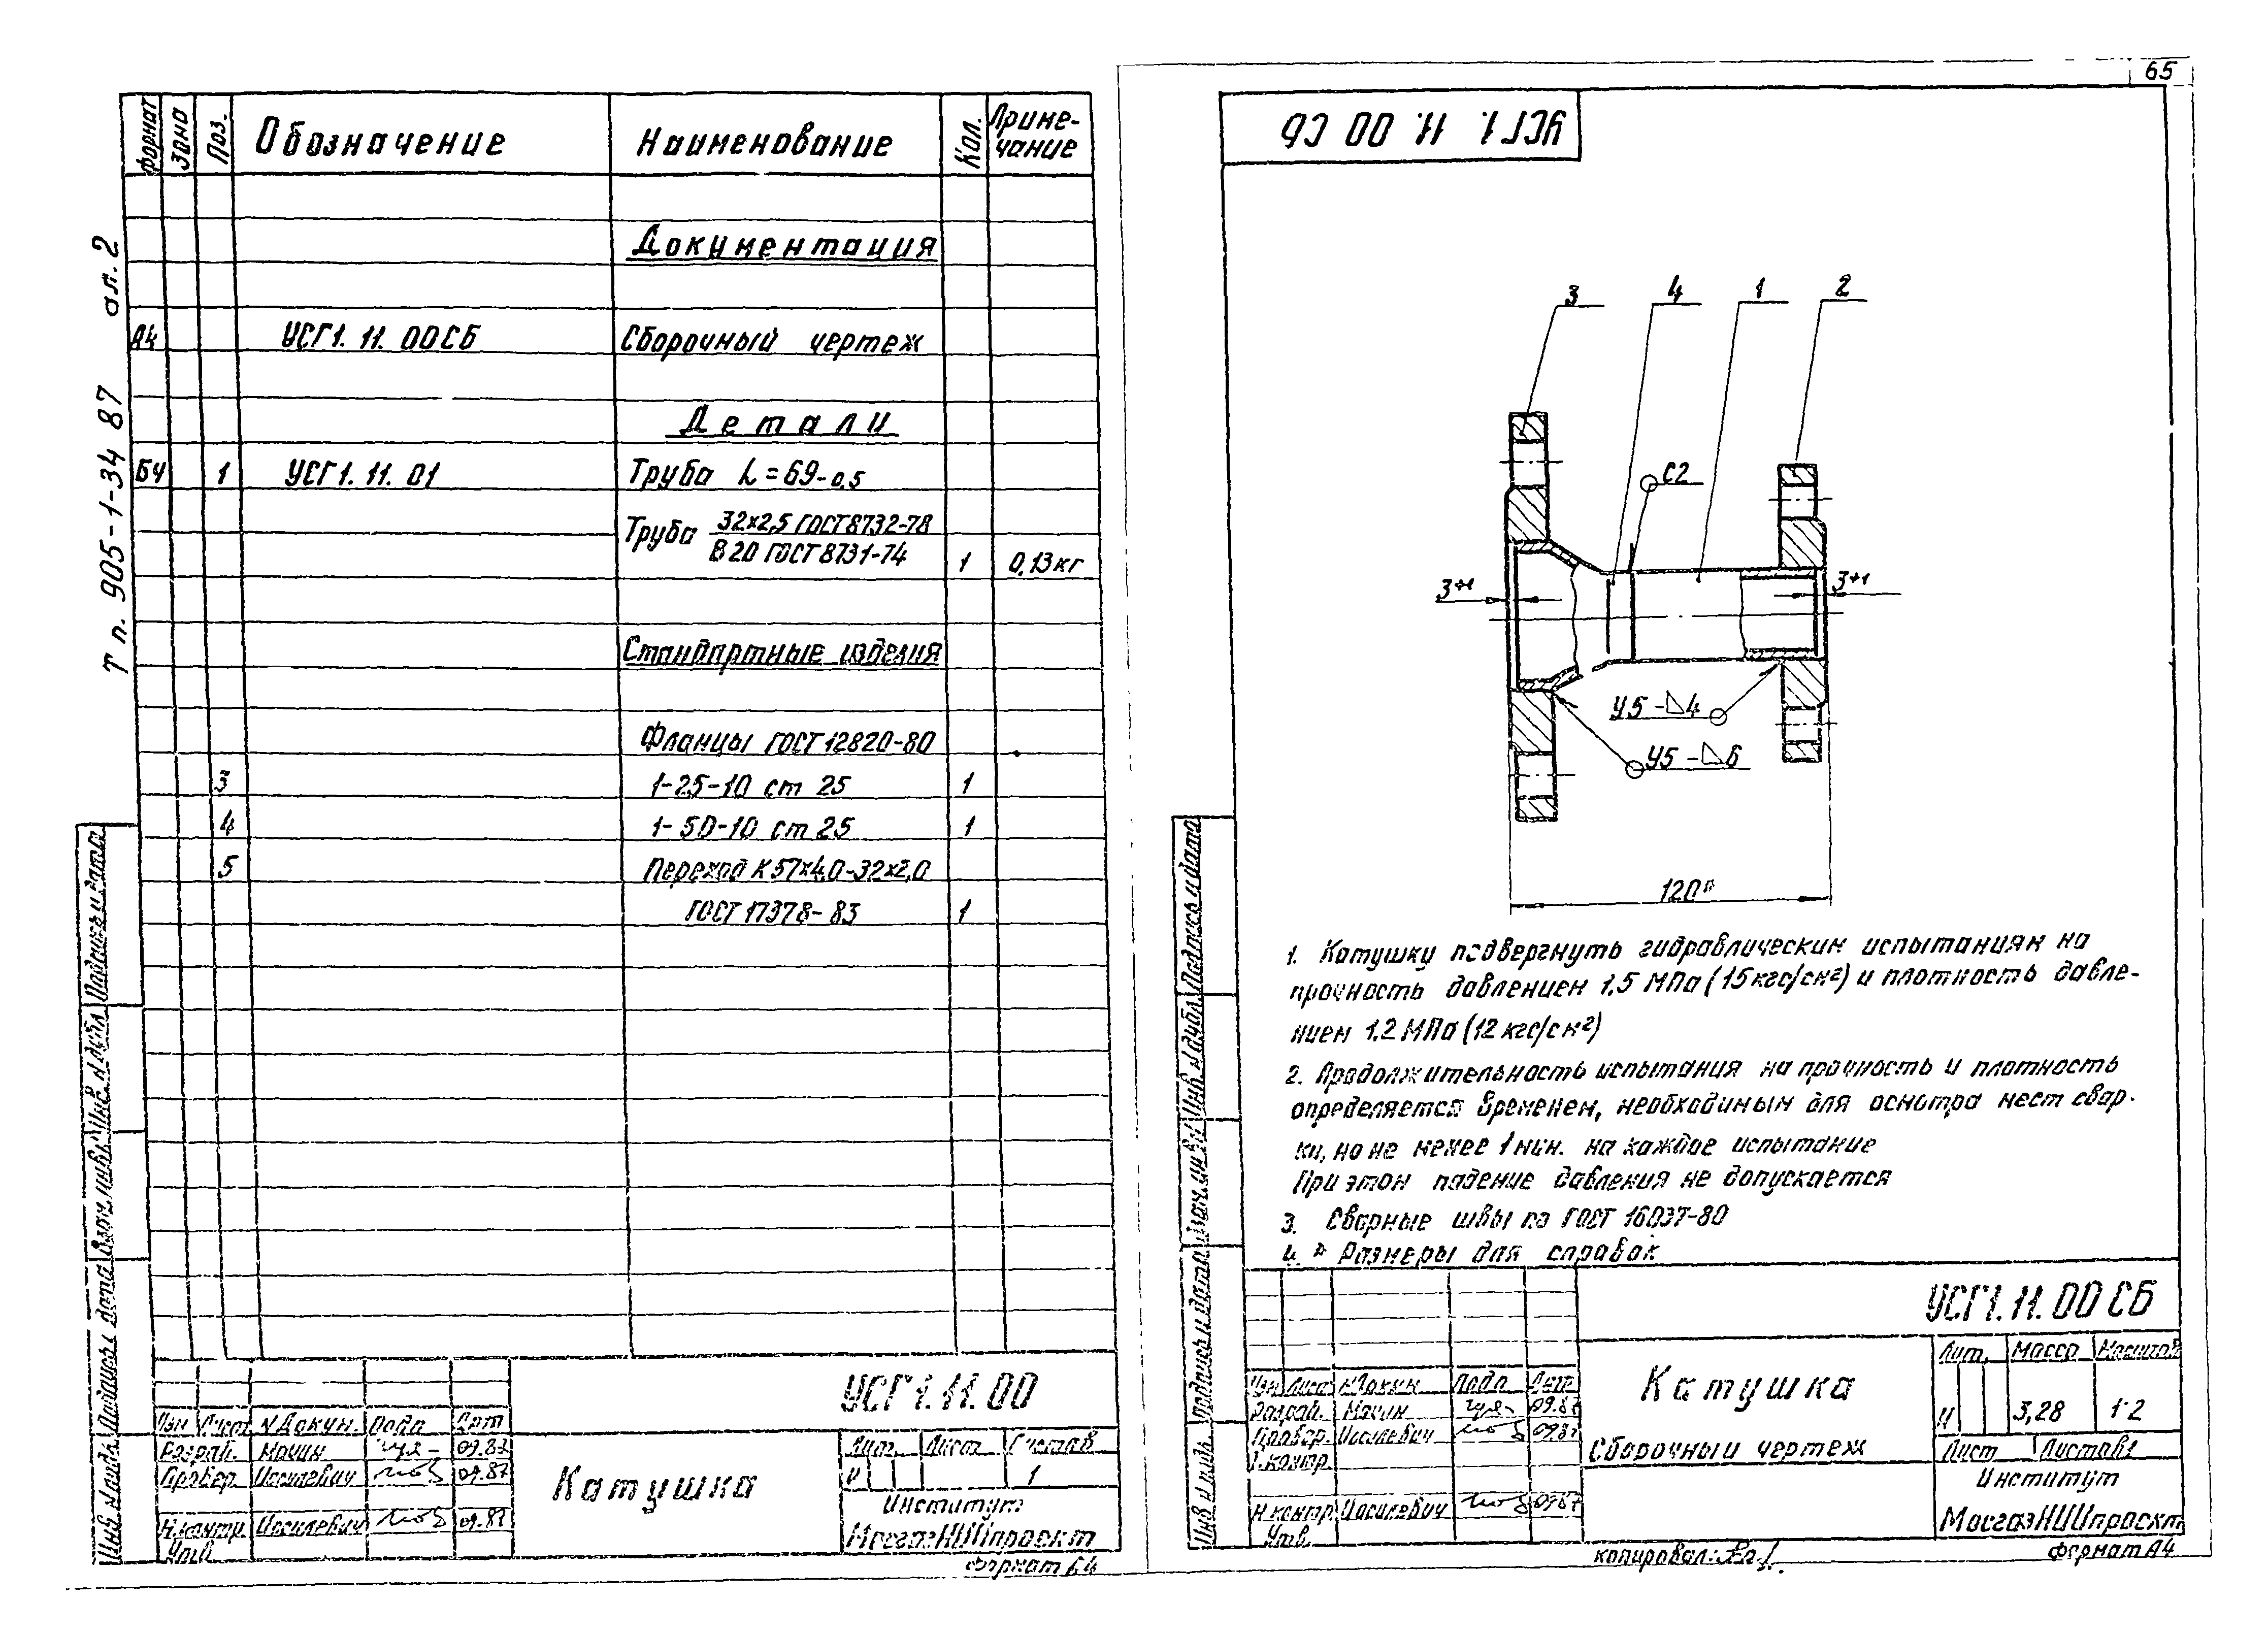 65
т п. 905-1-34 87 ал. 2
Формат Зона Поз. Обозначение Наименование Кол. Приме-
чание
Документация
А4 УСГ1. 11. 00СБ Сборочный чертеж
Детали
БЧ 1 УСГ1. 11. 01 Труба L=69-0,5
Труба 32×2,5 ГОСТ 8732-78
В 20 ГОСТ 8731-74 1 0,13кг
Стандартные изделия
Фланцы ГОСТ 12820-80
3 1-25-10 ст 25 1
4 1-50-10 ст 25 1
5 Переход К 57×4,0-32×2,0
ГОСТ 17378-83 1
Подпись и дата
Взам. инв. №
Подпись и дата
Инв. № подл.
УСГ1.11.00
Изм Лист № Докум. Подп Дат
Разраб. Мачин 09.87
Провер. Иосилевич 09.87
Н.контр. Иосилевич 09.87
Утв
Катушка
Лит. Лист Листов
И 1
Институт
МосгазНИИпроект
Формат А4
УСГ1. 11. 00 СБ
3 4 1 2
С2
3+1 3+1
У5-◺4
У5-◺6
120*
1. Катушку подвергнуть гидравлическим испытаниям на
прочность давлением 1,5 МПа (15кгс/см²) и плотность давле-
нием 1,2 МПа (12 кгс/см²)
2. Продолжительность испытания на прочность и плотность
определяется временем, необходимым для осмотра мест свар-
ки, но не менее 1 мин. на каждое испытание
При этом падение давления не допускается
3. Сварные швы по ГОСТ 16037-80
4. * Размеры для справок
Подпись и дата
Инв. № дубл.
Взам. инв. №
Подпись и дата
Инв. № подл.
УСГ1. 11. 00 СБ
Изм Лист № Докум Подп Дат
Разраб. Мачин 09.87
Провер. Иосилевич 09.87
Т.контр.
Н.контр Иосилевич 09.87
Утв.
Катушка
Сборочный чертеж
Лит. Масса Масштаб
И 3,28 1:2
Лист Листов 1
Институт
МосгазНИИпроект
копировал:
формат А4